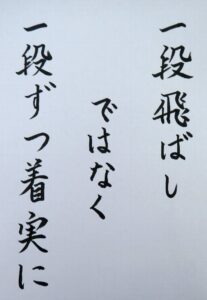 一段飛ばし
ではなく
一段ずつ着実に